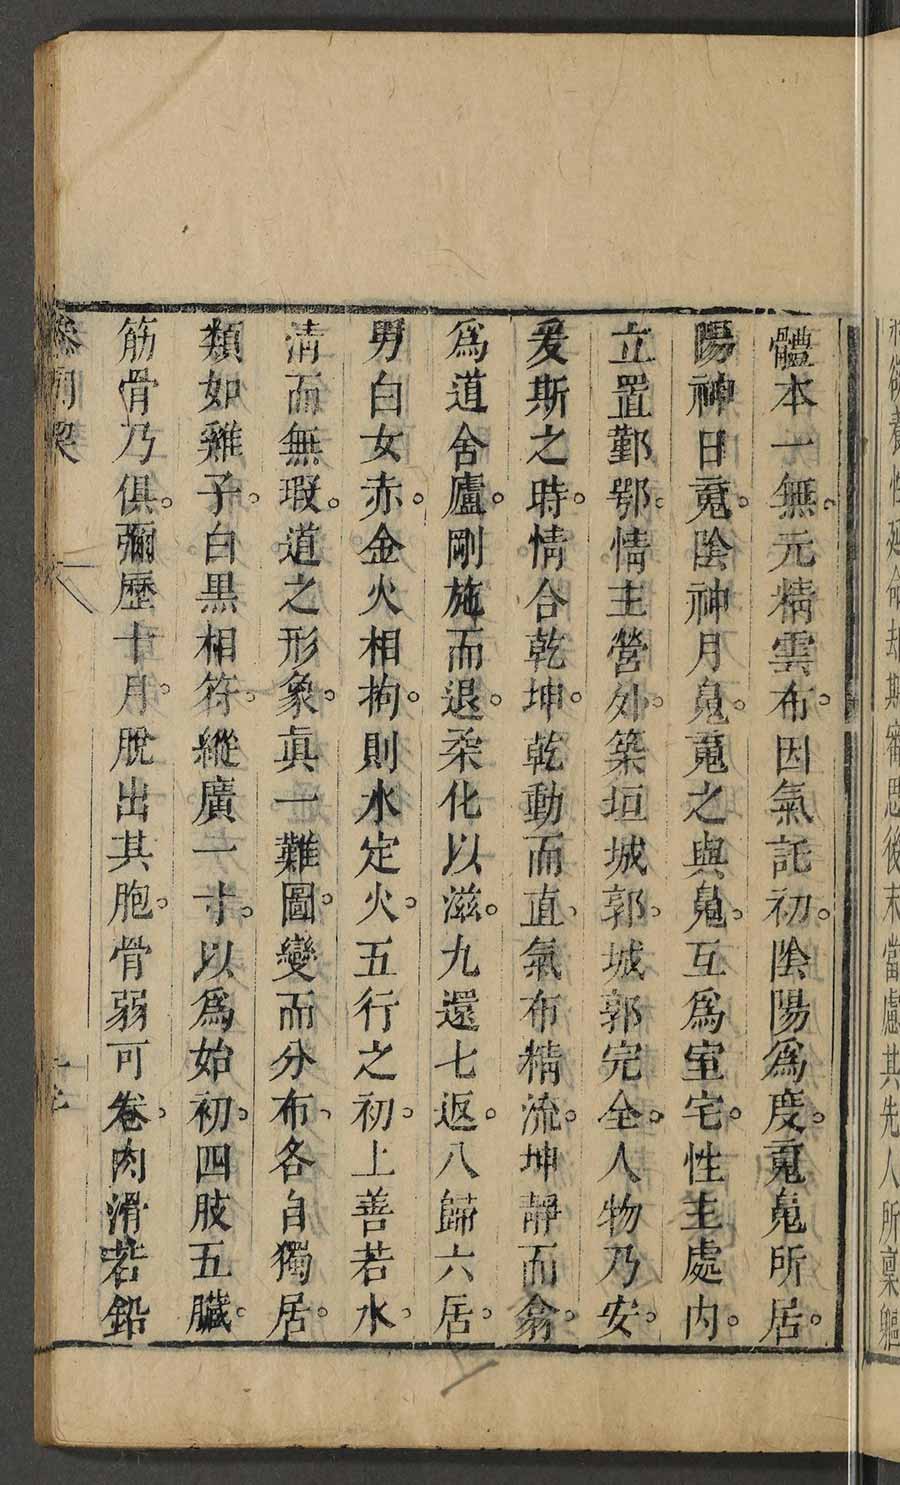 將欲養性延命却期審思後末當慮其先人所稟軀
體本一無。元精雲布。因氣託初。陰陽爲度。䰟䰠所居。
陽神日䰟。陰神月䰠。䰟之與䰠。互爲室宅。性主處內。
立置鄞鄂。情主營外。築垣城郭。城郭完全。人物乃安。
爰斯之時。情合乾坤。乾動而直、氣布精流。坤靜而翕。
爲道舍廬。剛施而退。柔化以滋。九還七返。八歸六居。
男白女赤。金火相拘。則水定火。五行之初。上善若水。
清而無瑕。道之形象。眞一難圖。變而分布、各自獨居。
類如雞子。白黒相符。縱廣一寸。以爲始初。四肢五臟。
筋骨乃俱。彌歷十月。脫出其胞。骨弱可卷。肉滑若鉛